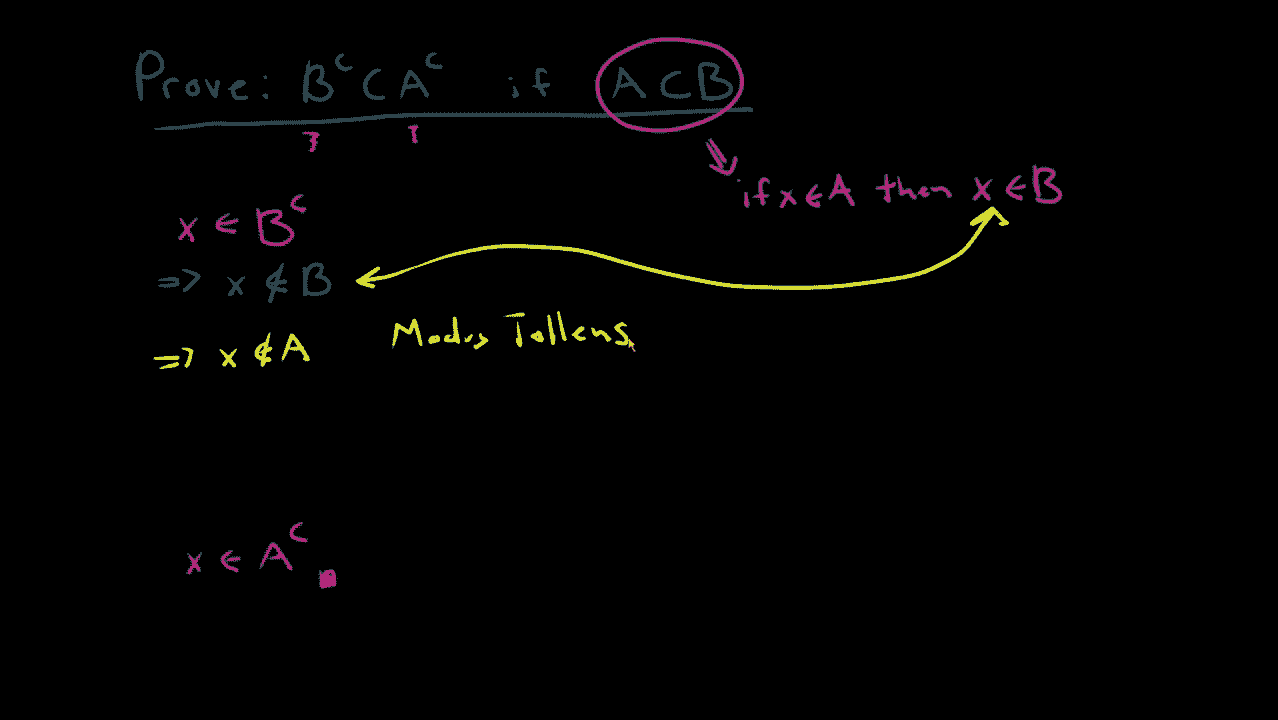 Prove: Bᶜ ⊂ Aᶜ if A ⊂ B
if x ∈ A then x ∈ B
x ∈ Bᶜ
⇒ x ∉ B
⇒ x ∉ A Modus Tollens
x ∈ Aᶜ